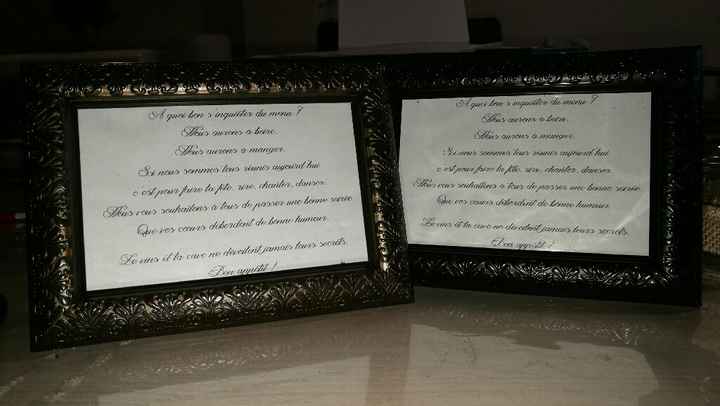 A quoi bon s'inquiéter du menu ?
Nous aurons a boire.
Nous aurons a manger.
Si nous sommes tous réunis aujourd'hui
c'est pour faire la fête, rire, chanter, danser.
Nous vous souhaitons à tous de passer une bonne soirée
Que vos cœurs débordent de bonne humeur.
Le vins et la cave ne dévoilent jamais leurs secrets.
Bon appétit !
A quoi bon s'inquiéter du menu ?
Nous aurons a boire.
Nous aurons a manger.
Si nous sommes tous réunis aujourd'hui
c'est pour faire la fête, rire, chanter, danser.
Nous vous souhaitons à tous de passer une bonne soirée
Que vos cœurs débordent de bonne humeur.
Le vins et la cave ne dévoilent jamais leurs secrets.
Bon appétit !